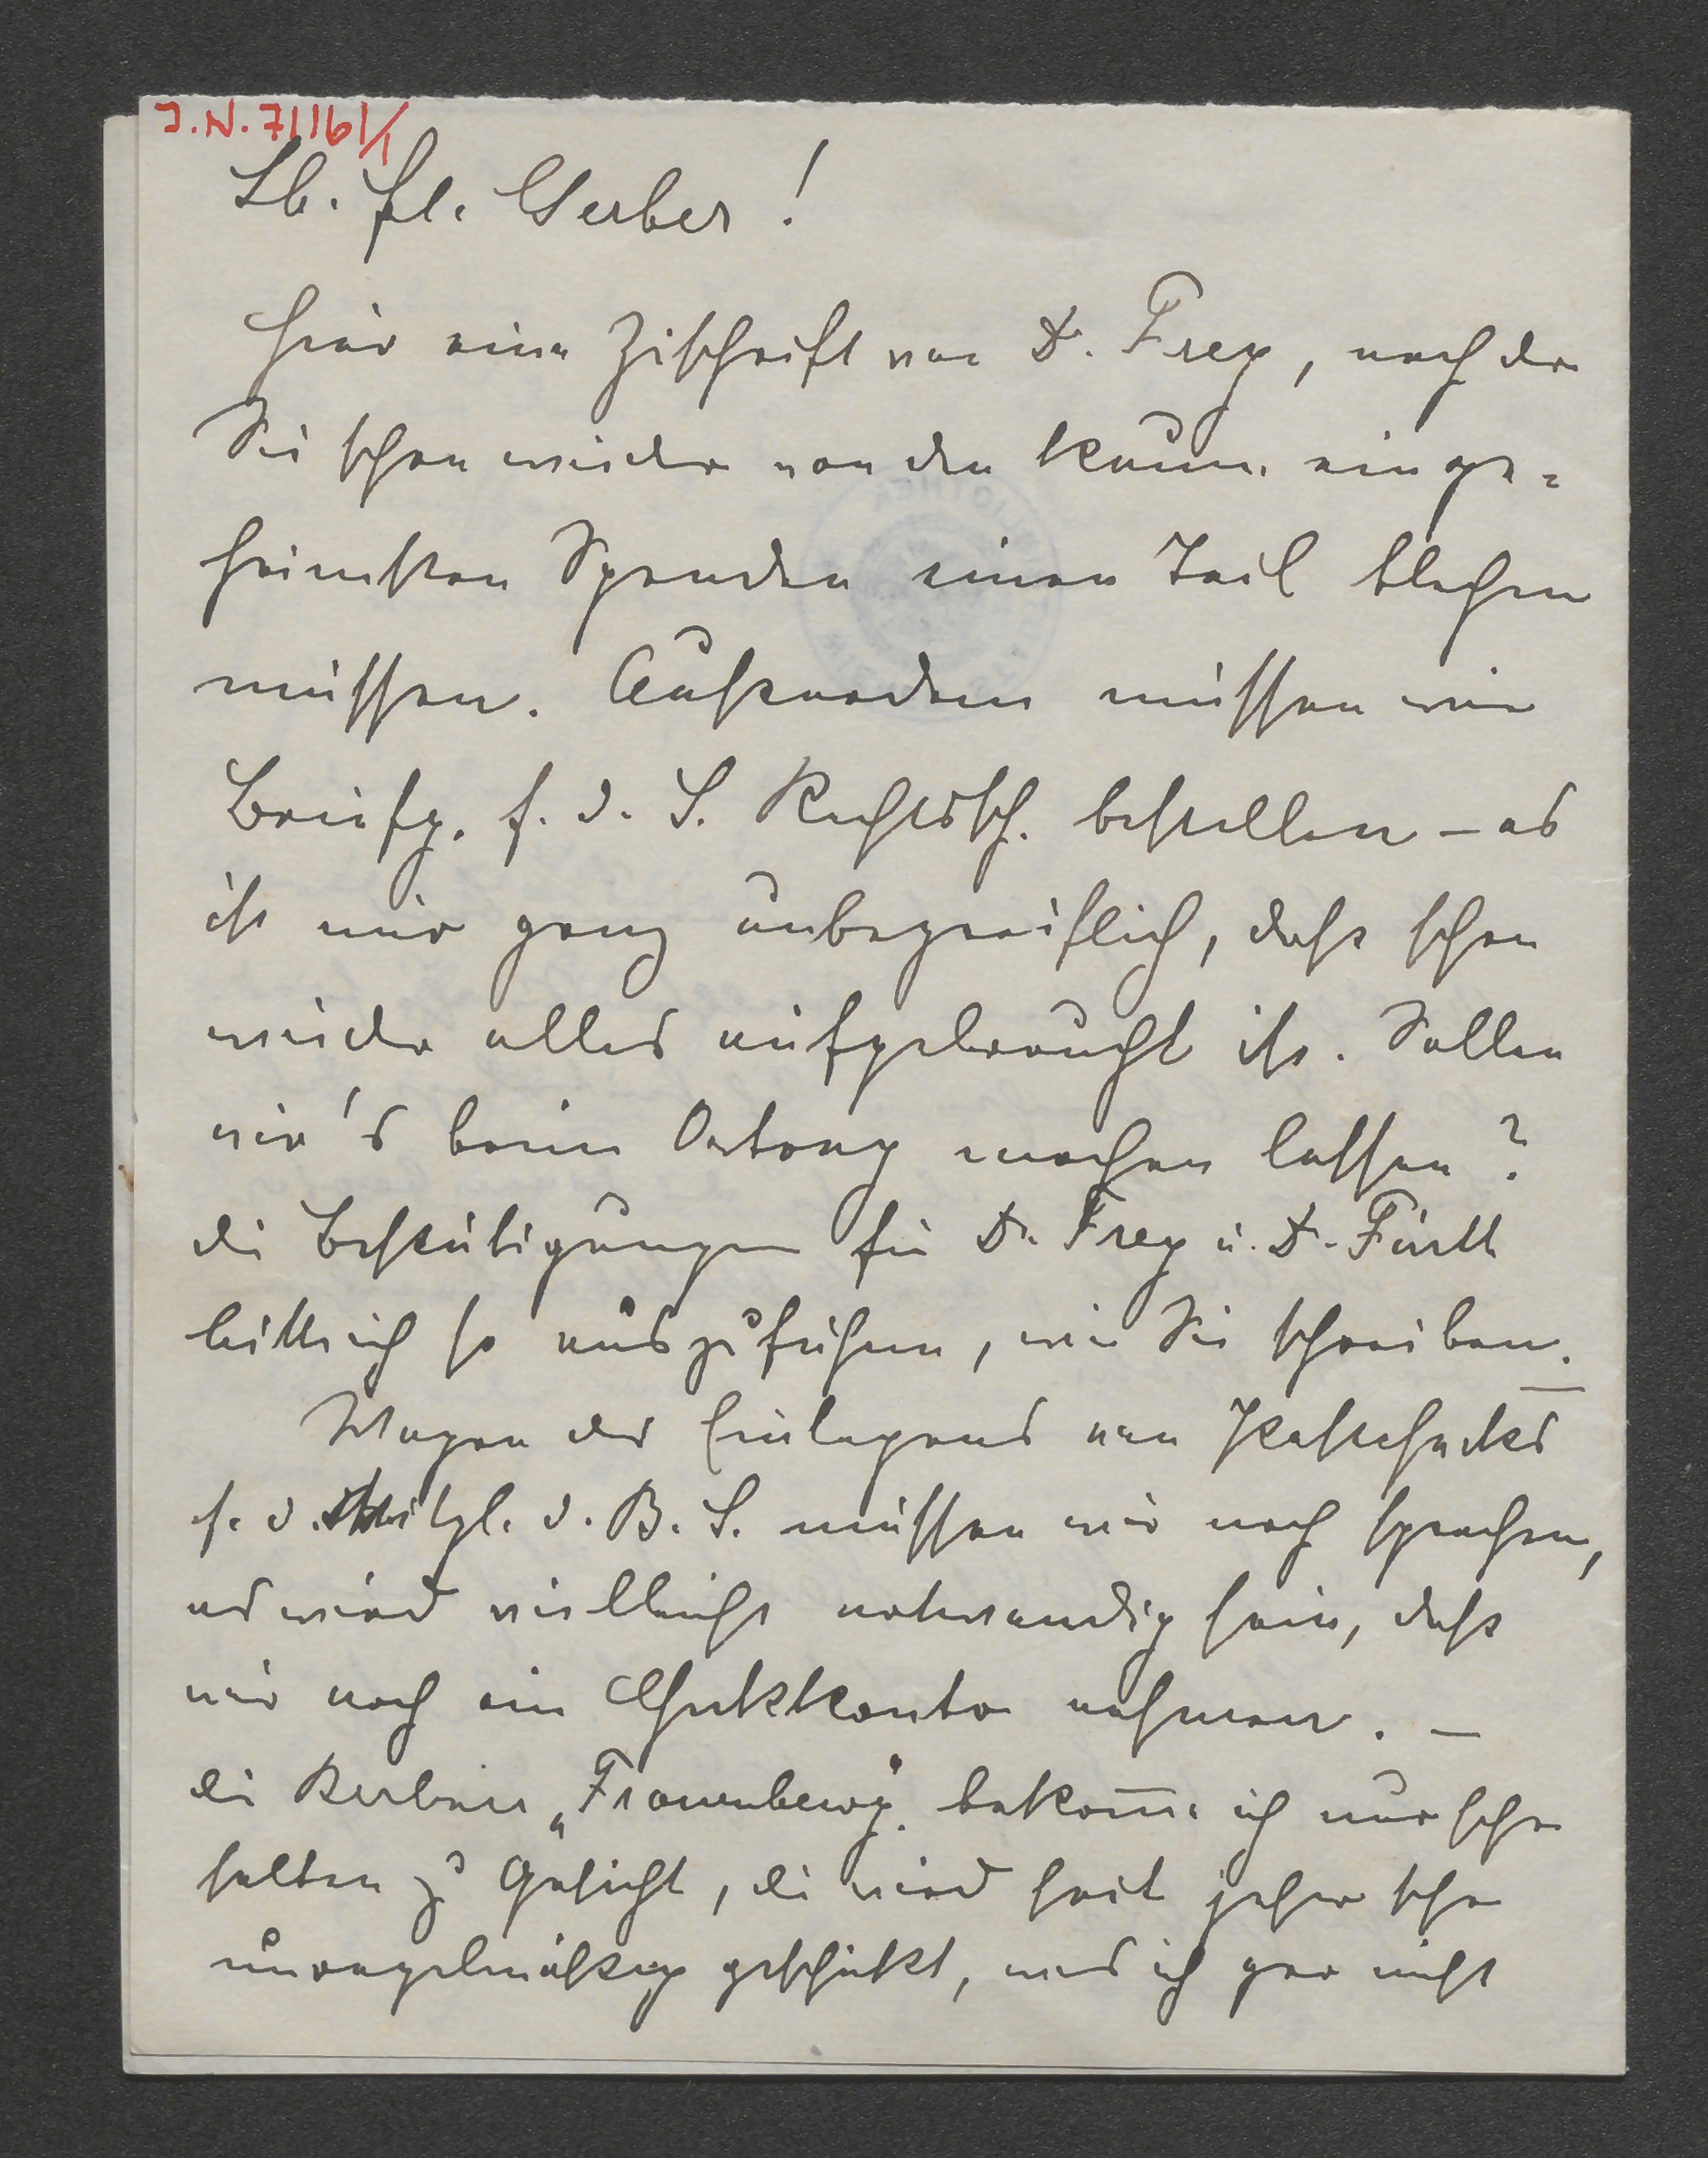 I.N. 71161/1
Lb. Frl. Gerber!
hier eine Zuschrift von Dr. Frey, nach der
Sie schon wieder von den kaum einge-
heimsten Spenden einen Teil blechen
müssen. Außerdem müssen wir
Briefp. f. d. S. Rechtssch. bestellen – es
ist mir ganz unbegreiflich, daß schon
wieder alles aufgebraucht ist. Sollen
wir's beim machen lassen?
die Bestätigungen für Dr. Frey u. Dr. Fürth
bitte ich so auszuführen, wie Sie schreiben. –
Wegen des Einlegens von Postschecks
f. d. Mitgl. d. B. S. müssen wir noch sprechen,
es wird vielleicht notwendig sein, daß
wir noch ein Scheckkonto nehmen. –
die Berliner „Frauenbewg." bekomme ich nur sehr
selten zu Gesicht, die wird seit jeher sehr
unregelmäßig geschickt, was ich gar nicht